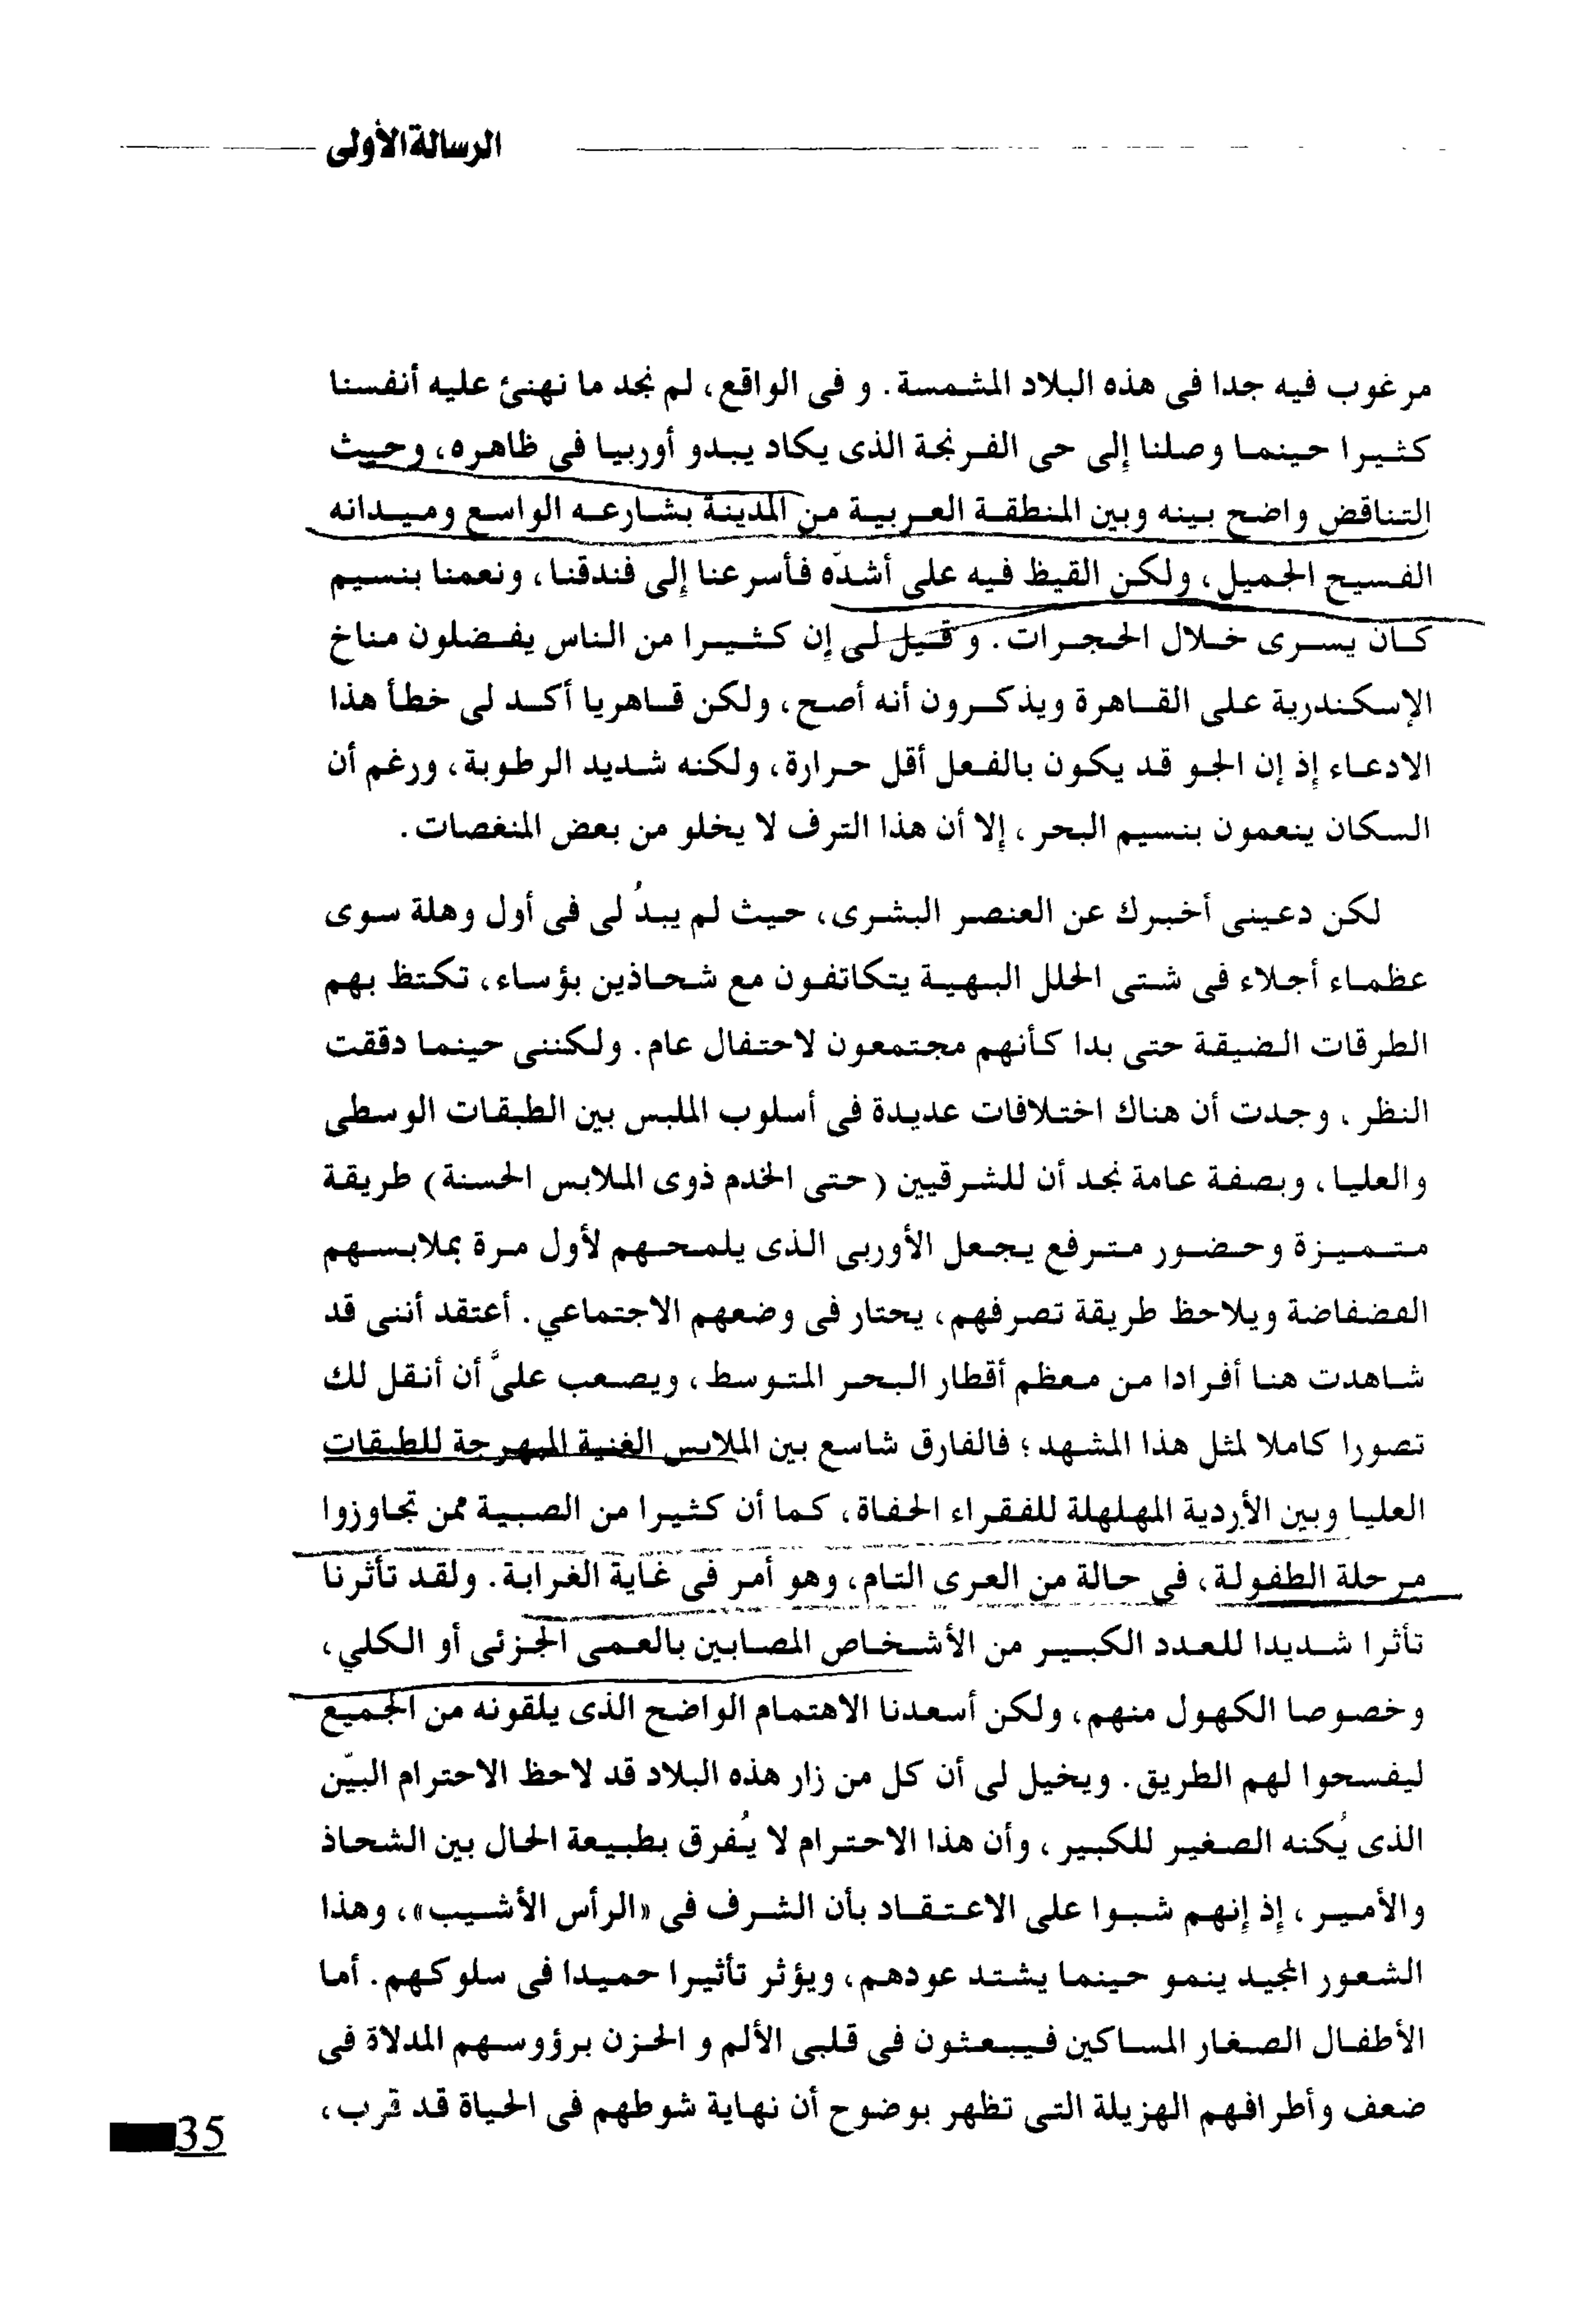 الرسالة الأولى
مرغوب فيه جدا فى هذه البلاد المشمسة. و فى الواقع، لم نجد ما نهنئ عليه أنفسنا
كثيرا حينما وصلنا إلى حى الفرنجة الذى يكاد يبدو أوربيا فى ظاهره، وحيث
التناقض واضح بينه وبين المنطقة العربية من المدينة بشارعه الواسع وميدانه
الفسيح الجميل، ولكن القيظ فيه على أشدّه فأسرعنا إلى فندقنا، ونعمنا بنسيم
كان يسرى خلال الحجرات. و قيل لى إن كثيرا من الناس يفضلون مناخ
الإسكندرية على القاهرة ويذكرون أنه أصح، ولكن قاهريا أكد لى خطأ هذا
الادعاء إذ إن الجو قد يكون بالفعل أقل حرارة، ولكنه شديد الرطوبة، ورغم أن
السكان ينعمون بنسيم البحر، إلا أن هذا الترف لا يخلو من بعض المنغصات.
لكن دعينى أخبرك عن العنصر البشرى، حيث لم يبدُ لى فى أول وهلة سوى
عظماء أجلاء فى شتى الحلل البهية يتكاتفون مع شحاذين بؤساء، تكتظ بهم
الطرقات الضيقة حتى بدا كأنهم مجتمعون لاحتفال عام. ولكننى حينما دققت
النظر، وجدت أن هناك اختلافات عديدة فى أسلوب الملبس بين الطبقات الوسطى
والعليا، وبصفة عامة نجد أن للشرقيين (حتى الخدم ذوى الملابس الحسنة) طريقة
متميزة وحضور مترفع يجعل الأوربى الذى يلمحهم لأول مرة بملابسهم
الفضفاضة ويلاحظ طريقة تصرفهم، يحتار فى وضعهم الاجتماعي. أعتقد أننى قد
شاهدت هنا أفرادا من معظم أقطار البحر المتوسط، ويصعب علىَّ أن أنقل لك
تصورا كاملا لمثل هذا المشهد؛ فالفارق شاسع بين الملابس الغنية المبهرجة للطبقات
العليا وبين الأردية المهلهلة للفقراء الحفاة، كما أن كثيرا من الصبية ممن تجاوزوا
مرحلة الطفولة، فى حالة من العرى التام، وهو أمر فى غاية الغرابة. ولقد تأثرنا
تأثرا شديدا للعدد الكبير من الأشخاص المصابين بالعمى الجزئى أو الكلي،
وخصوصا الكهول منهم، ولكن أسعدنا الاهتمام الواضح الذى يلقونه من الجميع
ليفسحوا لهم الطريق. ويخيل لى أن كل من زار هذه البلاد قد لاحظ الاحترام البيّن
الذى يُكنه الصغير للكبير، وأن هذا الاحترام لا يُفرق بطبيعة الحال بين الشحاذ
والأمير، إذ إنهم شبوا على الاعتقاد بأن الشرف فى «الرأس الأشيب»، وهذا
الشعور المجيد ينمو حينما يشتد عودهم، ويؤثر تأثيرا حميدا فى سلوكهم. أما
الأطفال الصغار المساكين فيبعثون فى قلبى الألم و الحزن برؤوسهم المدلاة فى
ضعف وأطرافهم الهزيلة التى تظهر بوضوح أن نهاية شوطهم فى الحياة قد قرب،
35